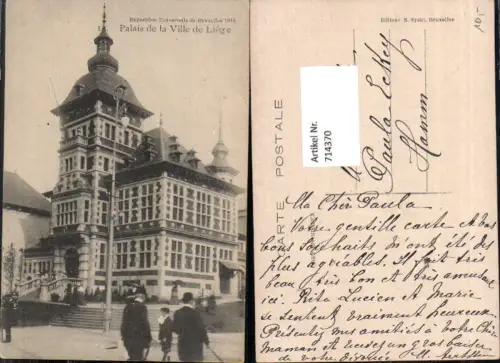 Exposition Universelle de Bruxelles 1910
Palais de la Ville de Liége
Editeur S. Bruxelles
10,-
CARTE POSTALE
Artikel Nr.
714370
Paula Eckey
Hamm
Ma Chère Paula
Votre gentille carte et vos
bons souhaits m'ont été des
plus agréables. Il fait très
beau très bon et très amusant
ici. Lucien et Marie
se sentent vraiment heureux.
Présentez mes amitiés à Votre Chère
Maman et un gros baiser
de votre